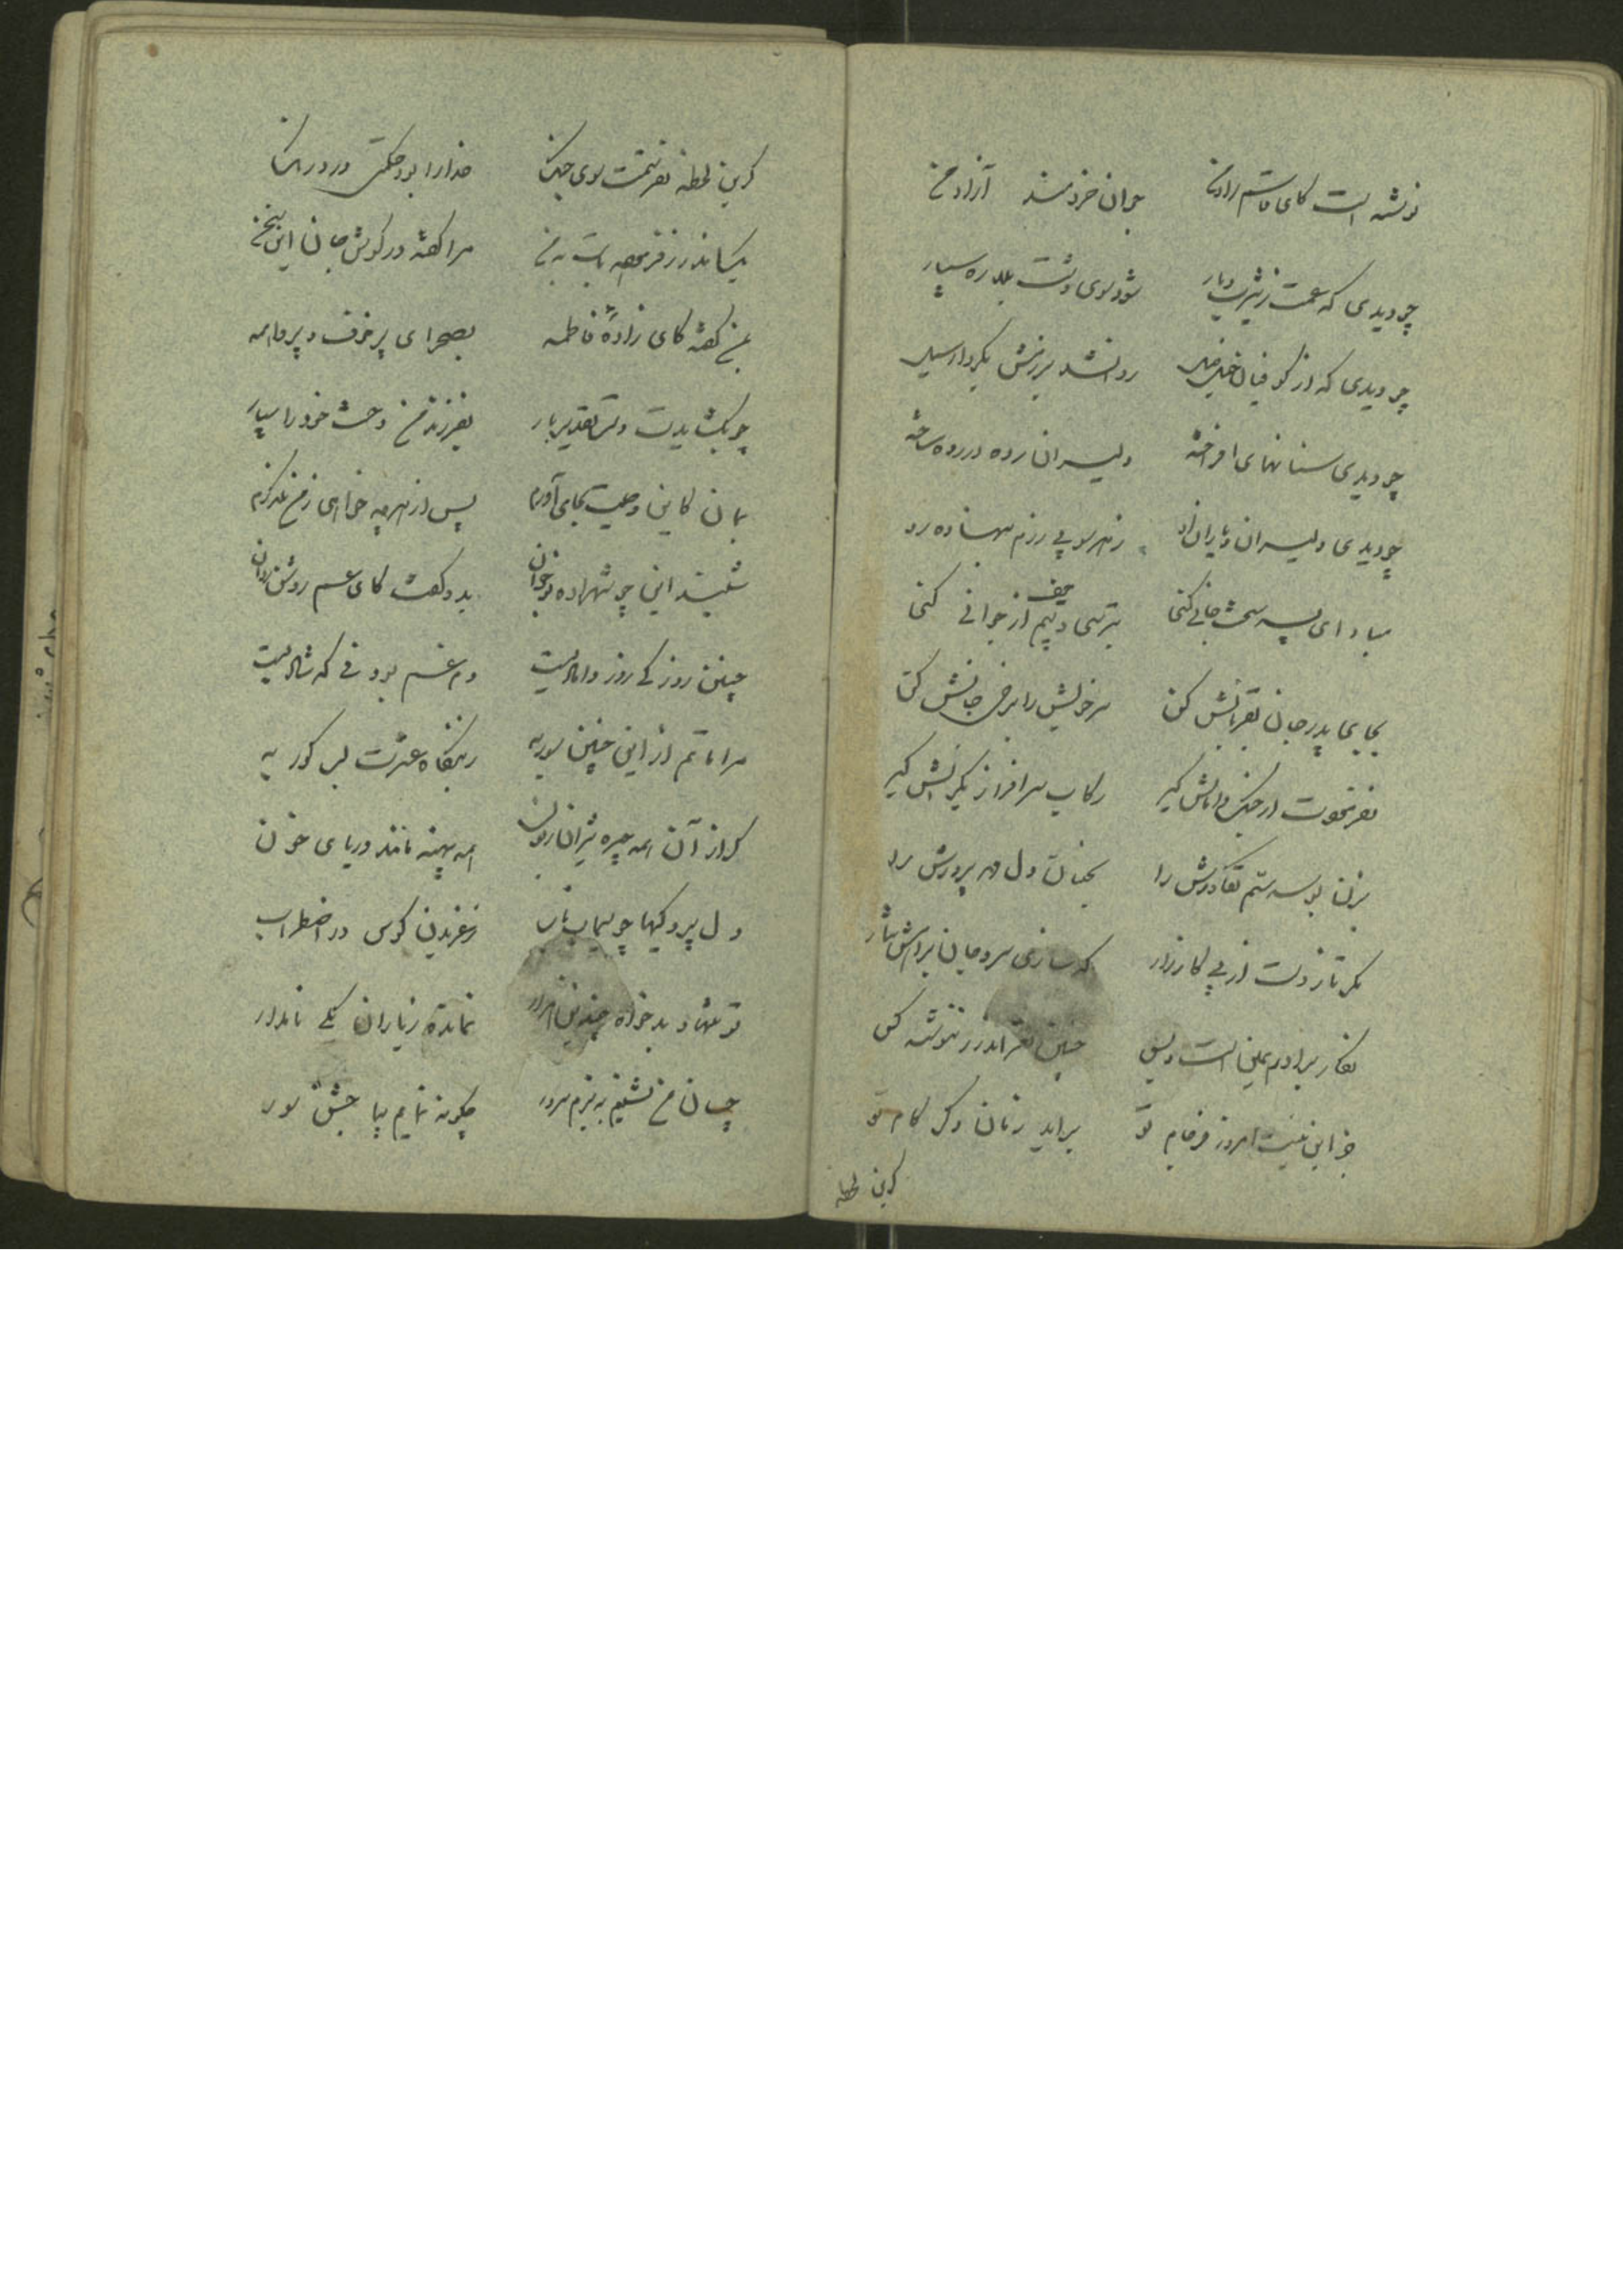 نوشته است کای قاسم راد من جوان خردمند آزاد من
چو دیدی که عمت ز یثرب دیار شود سوی دشت بلا ره سپار
چو دیدی که از کوفیان خیل خیل روان شد برزمش بکردار سیل
چو دیدی سنانهای افراخته دلیران رده در رده ساخته
چو دیدی دلیران و یاران او ز هر سو پی رزم بنهاده رو
مبادا ای پسر سخت جانی کنی بترسی و حیف از جوانی کنی
بجای پدر جان بقربانش کن سر خویش را برخی جانش کن
بفرخوت از جنگ دامانش گیر رکاب سرافراز یکرانش گیر
بزن بوسه سم تکاورش را بجنبان دل مهر پرورش را
مگر تا زدست از پی کارزار که سازی سر و جان براهش نثار
نگار برادرم این است و بس چنین نغز اندرز ننوشته کس
جز این نیست امروز فرجام تو براید زنان دگر کام تو
کزین لحظه
کزین لحظه نغزیتمت سوی جنگ خدا را بود حکمتی در درنگ
یک اندرز فرخنده بابت به من مرا گفته در گوش جان این سخن
بمن گفته کای زادهٔ فاطمه بصحرای پر خوف و پر واهمه
چو بگشایدت دست تقدیر بار بفرزند من دخت خود را سپار
بمان کاین وصیت بجای آورم پس از هر چه خواهی ز من نگذرم
شنید این چو شهزاده نوجوان بدو گفت کای عم روشن روان
چنین روز کی روز دامادیست دم غم بود نی که شادیست
مرا ماتم از این چنین سور به ز بنگاه عشرت لب گور به
کزاز آن همه چیره شیران همه پهنه مانند دریای خون
دل پردگیها چو سیماب ناب ز غریدن کوس در اضطراب
تو تنها و بدخواه چندین هزار نمانده ز یاران یکی نامدار
چسان من نشینم به بزم سرور چگونه نمایم بپا جشن سور